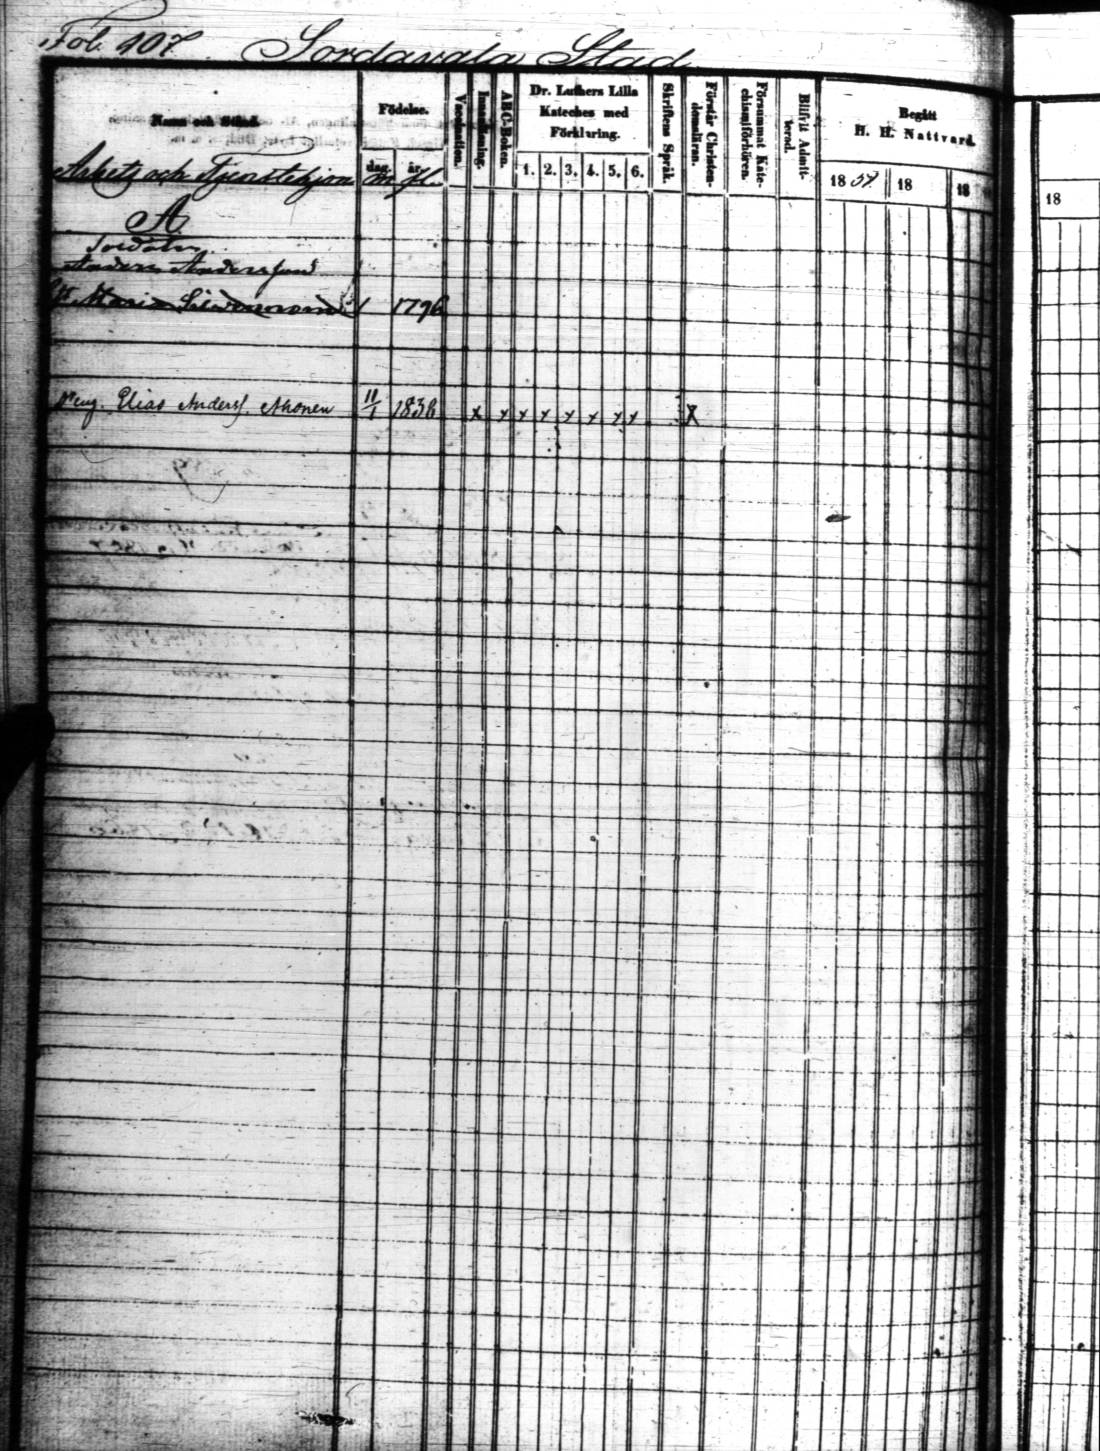 Fol. 107 Sordavala Stad
Namn och Stånd.
Födelse.
dag. år.
Vaccination.
Innanläsning.
ABC-Boken.
Dr. Luthers Lilla
Kateches med
Förklaring.
1. 2. 3. 4. 5. 6.
Skriftens Språk.
Förstår Christen-
domsläran.
Försummat Kate-
chismiförhören.
Blifvit Admit-
terad.
Begått
H. H. Nattvard.
18 18 18
18
Arbets och Tjenstehjon
A
Soldaten
Anders Andersson
Maria 1796
Elias Anders. Ahonen 11/1 1838 x x x x x x x x x